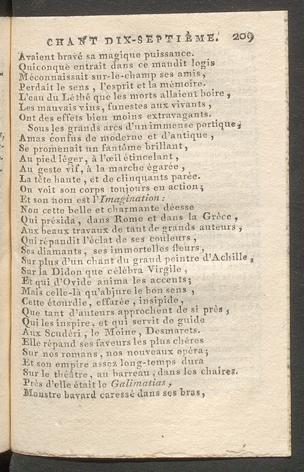 CHANT DIX-SEPTIÈME. 209
Avaient bravé sa magique puissance.
Quiconque entrait dans ce maudit logis
Méconnaissait sur-le-champ ses amis,
Perdait le sens, l'esprit et la mémoire.
L'eau du Léthé que les morts allaient boire,
Les mauvais vins, funestes aux vivants,
Ont des effets bien moins extravagants.
Sous les grands arcs d'un immense portique,
Amas confus de moderne et d'antique,
Se promenait un fantôme brillant,
Au pied léger, à l'œil étincelant,
Au geste vif, à la marche égarée,
La tête haute, et de clinquants parée.
On voit son corps toujours en action;
Et son nom est l'Imagination:
Non cette belle et charmante déesse
Qui présida, dans Rome et dans la Grèce,
Aux beaux travaux de tant de grands auteurs,
Qui répandit l'éclat de ses couleurs,
Ses diamants, ses immortelles fleurs,
Sur plus d'un chant du grand peintre d'Achille,
Sur la Didon que célébra Virgile,
Et qui d'Ovide anima les accents;
Mais celle-là qu'abjure le bon sens,
Cette étourdie, effarée, insipide,
Que tant d'auteurs approchent de si près,
Qui les inspire, et qui servit de guide
Aux Scudéri, le Moine, Desmarets.
Elle répand ses faveurs les plus chères
Sur nos romans, nos nouveaux opéra;
Et son empire assez long-temps dura
Sur le théâtre, au barreau, dans les chaires.
Près d'elle était le Galimatias,
Monstre bavard caressé dans ses bras,